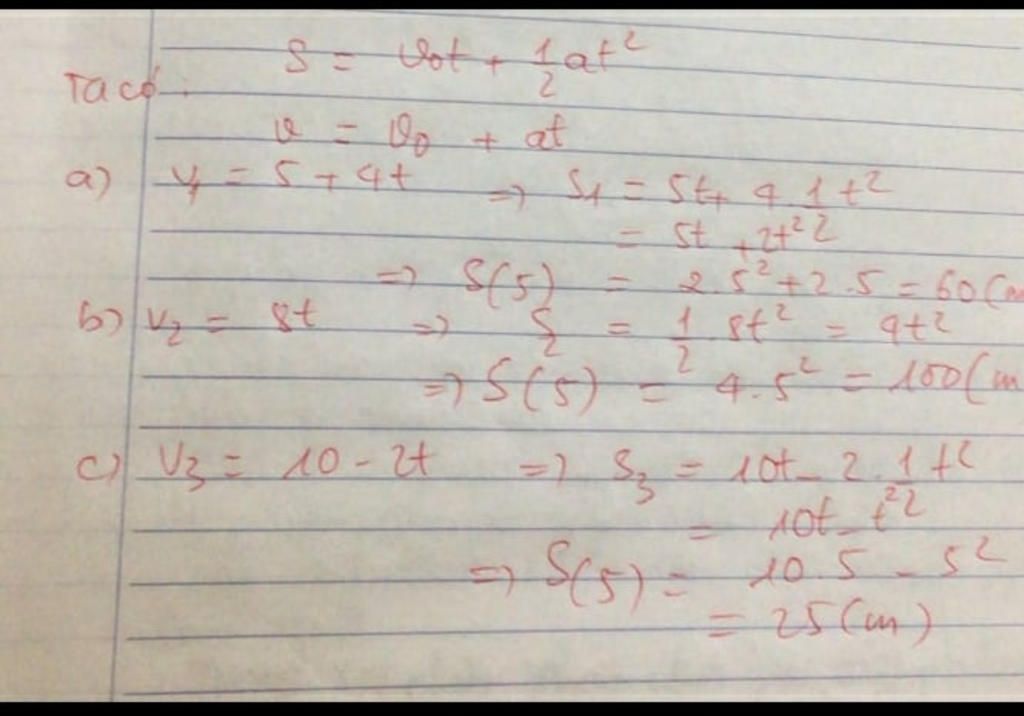 S = v₀t + 1/2 at²
Ta có:
v = v₀ + at
a) v₁ = 5 + 4t => S₁ = 5t + 4 . 1/2 t²
= 5t + 2t²
=> S(5) = 2.5² + 2.5 = 60 (m
b) v₂ = 8t => S₂ = 1/2 8t² = 4t²
=> S(5) = 4.5² = 100 (m
c) v₃ = 10 - 2t => S₃ = 10t - 2 . 1/2 t²
= 10t - t²
=> S(5) = 10.5 - 5²
= 25 (m)